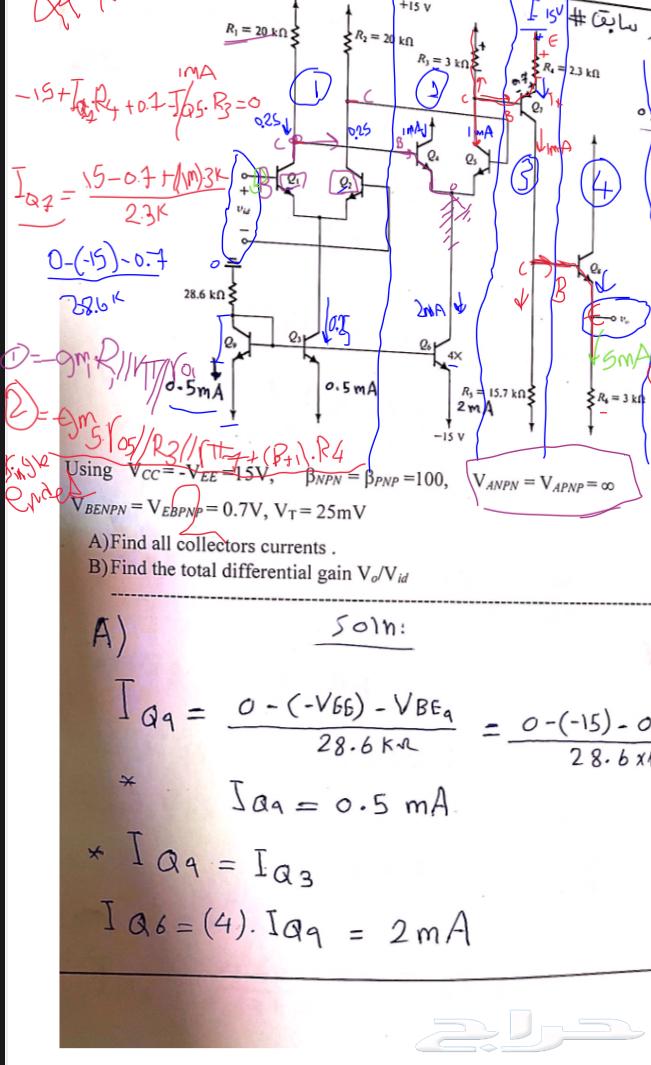 +15 V
I 15V
# سابق
R₁ = 20 kΩ
R₂ = 20 kΩ
R₃ = 3 kΩ
R₄ = 2.3 kΩ
1mA
-15+I_Q7.R4+0.7-I_Q5.R3=0
0.25
0.25
1mA
1mA
1mA
C
C
B
C
B
E
① ② ③ ④
Q₁
Q₂
Q₄
Q₅
Q₇
Q₈
+
v_id
−
I_Q7 = 15-0.7+(1m)3K
2.3K
0-(-15)-0.7
28.6K
0
28.6 kΩ
0.5
2mA
C
B
E
5mA
Q₉
Q₃
Q₆
4X
0.5mA
0.5mA
2mA
R₅ = 15.7 kΩ
R₆ = 3 kΩ
−15 V
①=-gm R1//rπ//ro1
②=-gm5 ro5//R3//rπ7+(β+1).R4
single ended
Using V_CC = -V_EE =15V, β_NPN = β_PNP =100, V_ANPN = V_APNP = ∞
V_BENPN = V_EBPNP = 0.7V, V_T = 25mV
2
A)Find all collectors currents .
B)Find the total differential gain V_o/V_id
A) Soln:
I_Q9 = 0-(-VEE)-VBE9 = 0-(-15)-0
28.6 KΩ 28.6x
* I_Q9 = 0.5 mA
* I_Q9 = I_Q3
I_Q6 = (4). I_Q9 = 2mA
حراج